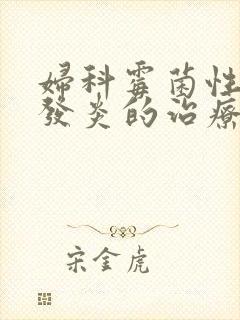 婦科霉菌性
發炎的治療
宋金虎